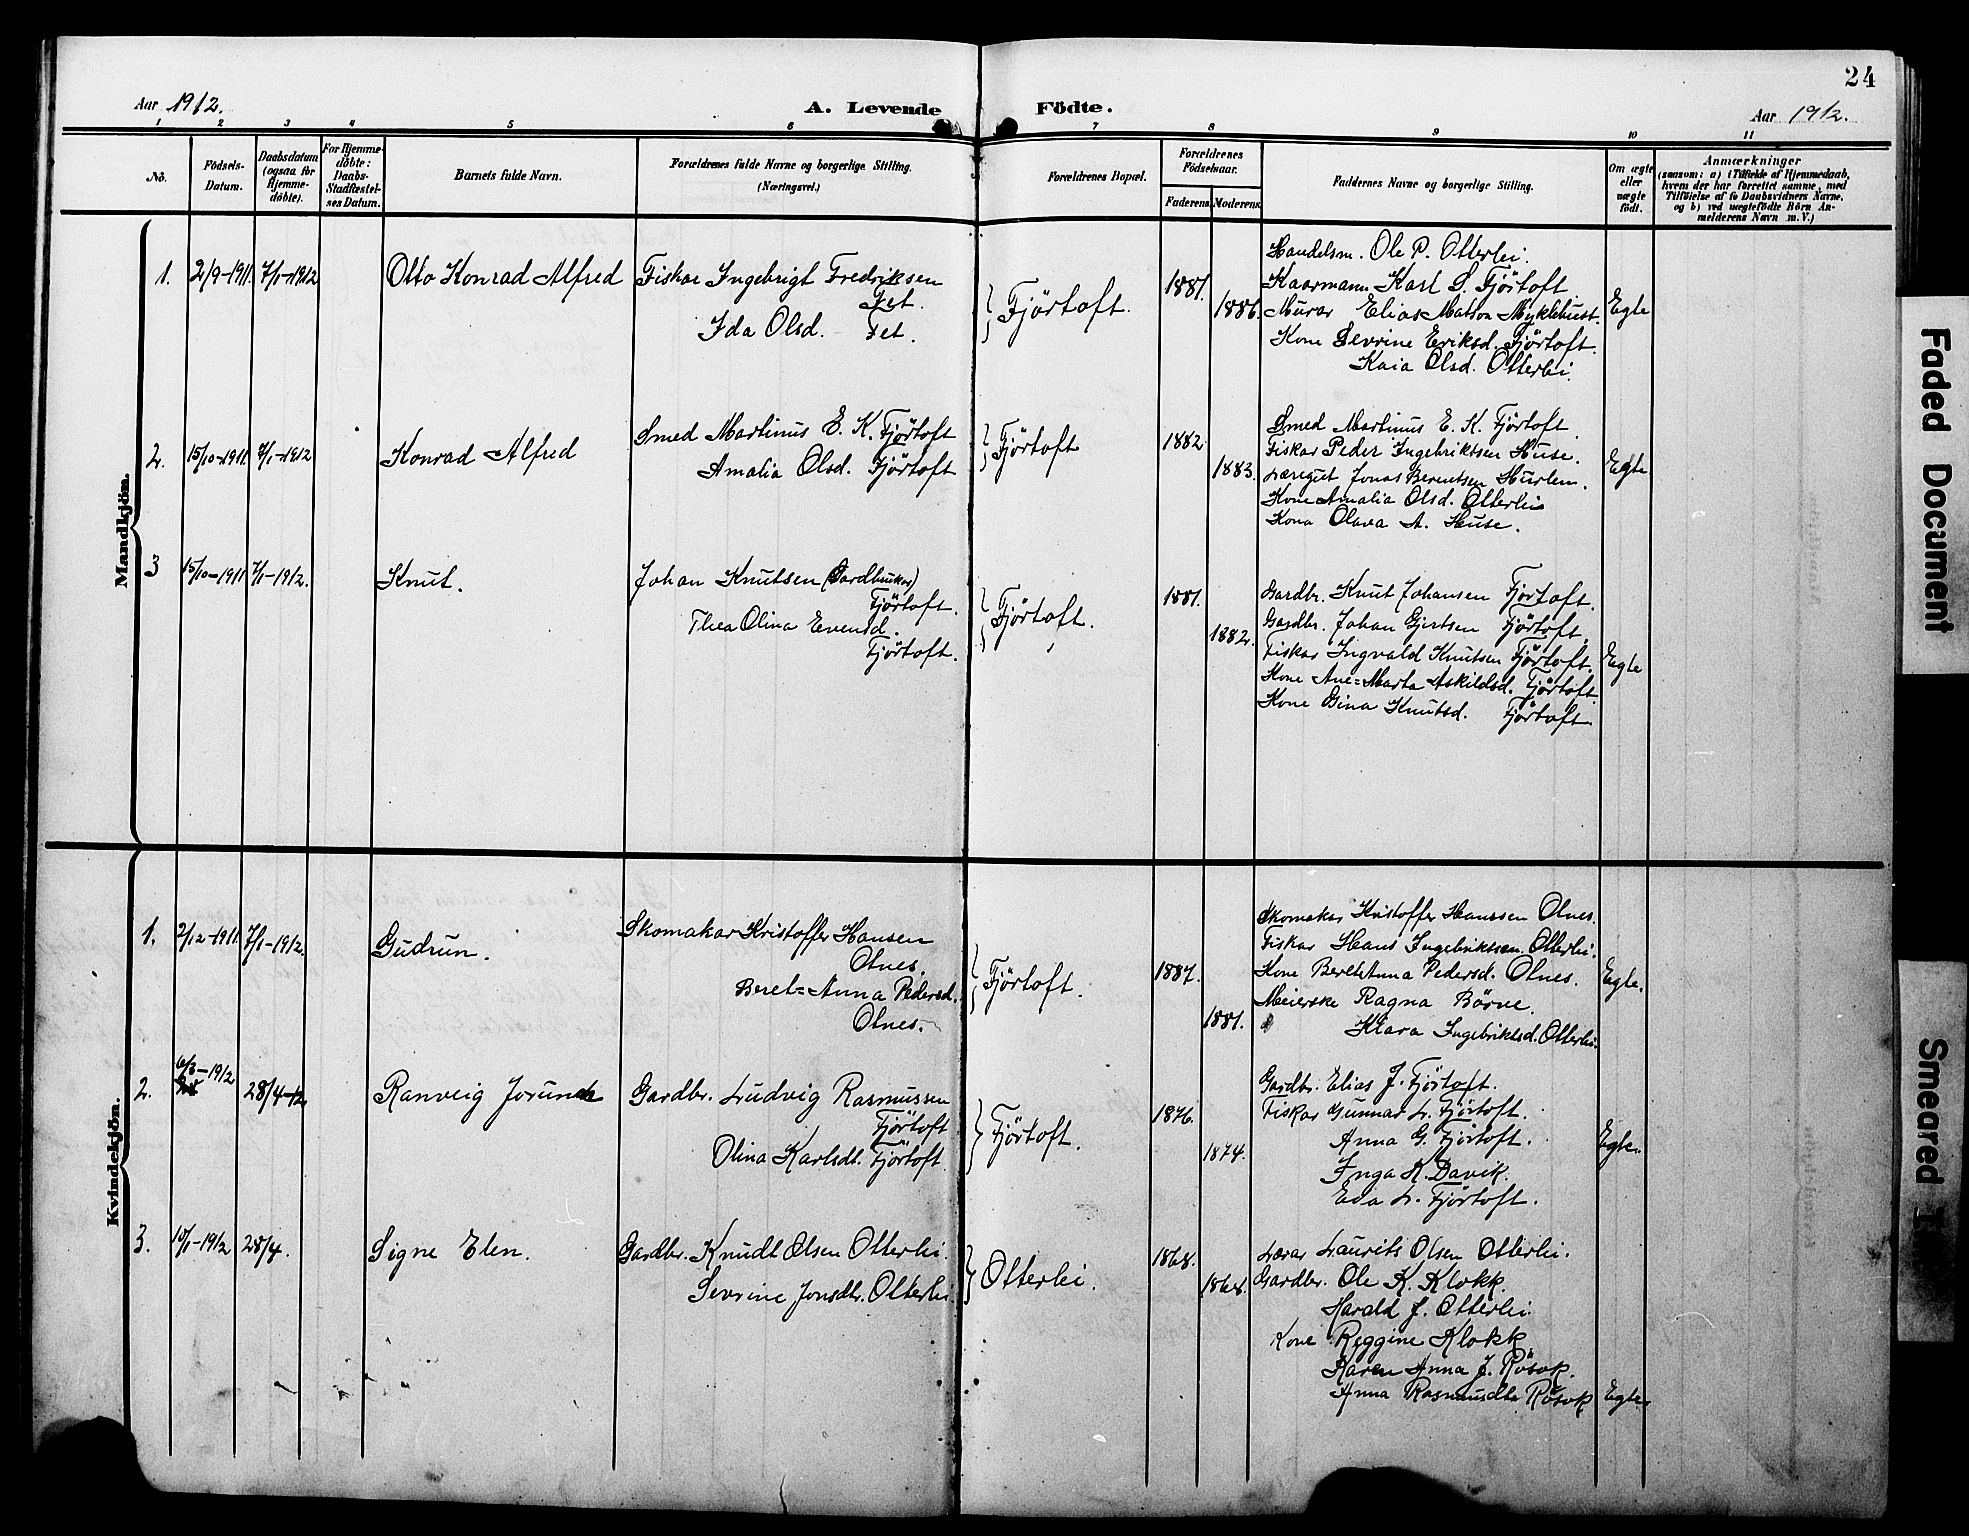 24
Aar 1912.
A. Levende Födte.
Aar 1912.
1 2 3 4 5 6 7 8 9 10 11
Nō.
Födsels-Datum.
Daabsdatum (ogsaa for Hjemme-döbte).
For Hjemme-döbte: Daabs-Stadfæstel-ses Datum.
Barnets fulde Navn.
Forældrenes fulde Navne og borgerlige Stilling. (Næringsvei.)
Forældrenes Bopæl.
Forældrenes Födselsaar.
Faderens. Moderens.
Faddernes Navne og borgerlige Stilling.
Om ægte eller uægte födt.
Anmærkninger
(saasom: a) i Tilfælde af Hjemmedaab,
hvem der har forrettet samme, med
Tilföielse af to Daabsvidners Navne,
og b) ved uægtefödte Börn An-
melderens Navn m. V.)
Mandkjön.
1. 2/9-1911. 7/1-1912 Otto Konrad Alfred
Fiskar Ingebrigt Fredriksen
Fet.
Ida Olsd. Fet.
Fjörtoft.
1881.
1886.
Handelsm. Ole P. Otterlei.
Kaarmann Karl S. Fjörtoft
Murar Elias Matson Myklebust.
Kone Sevrine Eriksd. Fjörtoft.
Kaia Olsd. Otterlei.
Egte
2. 15/10-1911. 7/1-1912 Konrad Alfred
Smed Martinus E. K. Fjörtoft
Amalia Olsd. Fjörtoft
Fjörtoft
1882
1883.
Smed Martinus E. K. Fjörtoft
Fiskar Peder Ingebriktsen Huse.
Læregut Jonas Berentsen
Kone Amalia Olsd. Otterlei
Kona Olava A. Huse.
Egte
3 15/10-1911 7/1-1912. Knut.
Johan Knutsen (Gardbrukar)
Fjörtoft.
Thea Olina Evensd.
Fjörtoft.
Fjörtoft.
1881.
1882.
Gardbr. Knut Johansen Fjörtoft.
Gardbr. Johan Gjertsen Fjörtoft.
Fiskar Ingvald Knutsen Fjörtoft.
Kone Ane=Marta Askildsd. Fjörtoft
Kone Gina Knutsd. Fjörtoft.
Egte
Kvindekjön.
1. 2/12-1911. 7/1-1912. Gudrun.
Skomakar Kristoffer Hansen
Olnes.
Beret=Anna Pedersd.
Olnes.
Fjörtoft.
1887.
1881.
Skomakar Kristoffer Hanssen Olnes.
Fiskar Hans Ingebriktsen. Otterlei.
Kone Beret Anna Pedersd. Olnes.
Meierske Ragna Börve.
Klara Ingebriktsd. Otterlei.
Egte.
2. 6/3-1912 28/4-12 Ranveig Jorunn
Gardbr. Ludvig Rasmussen
Fjörtoft
Olina Karlsdt. Fjörtoft
Fjörtoft.
1876.
1874.
Gardbr. Elias J. Fjörtoft.
Fiskar Gunnar L. Fjörtoft.
Anna G. Fjörtoft.
Inga K. Davik.
Eva L. Fjörtoft.
Egte.
3. 10/1-1912 28/4. Signe Elen.
Gardbr. Knudt Olsen Otterlei.
Sevrine Jonsdtr. Otterlei.
Otterlei.
1868.
1868.
Lærar Laurits Olsen Otterlei.
Gardbr. Ole K. Klokk.
Harald J. Otterlei
Kone Reggine Klokk
Karen Anna J. Rösok.
Anna Rasmusdtr Rösok
Egte
Faded Document
Smeared